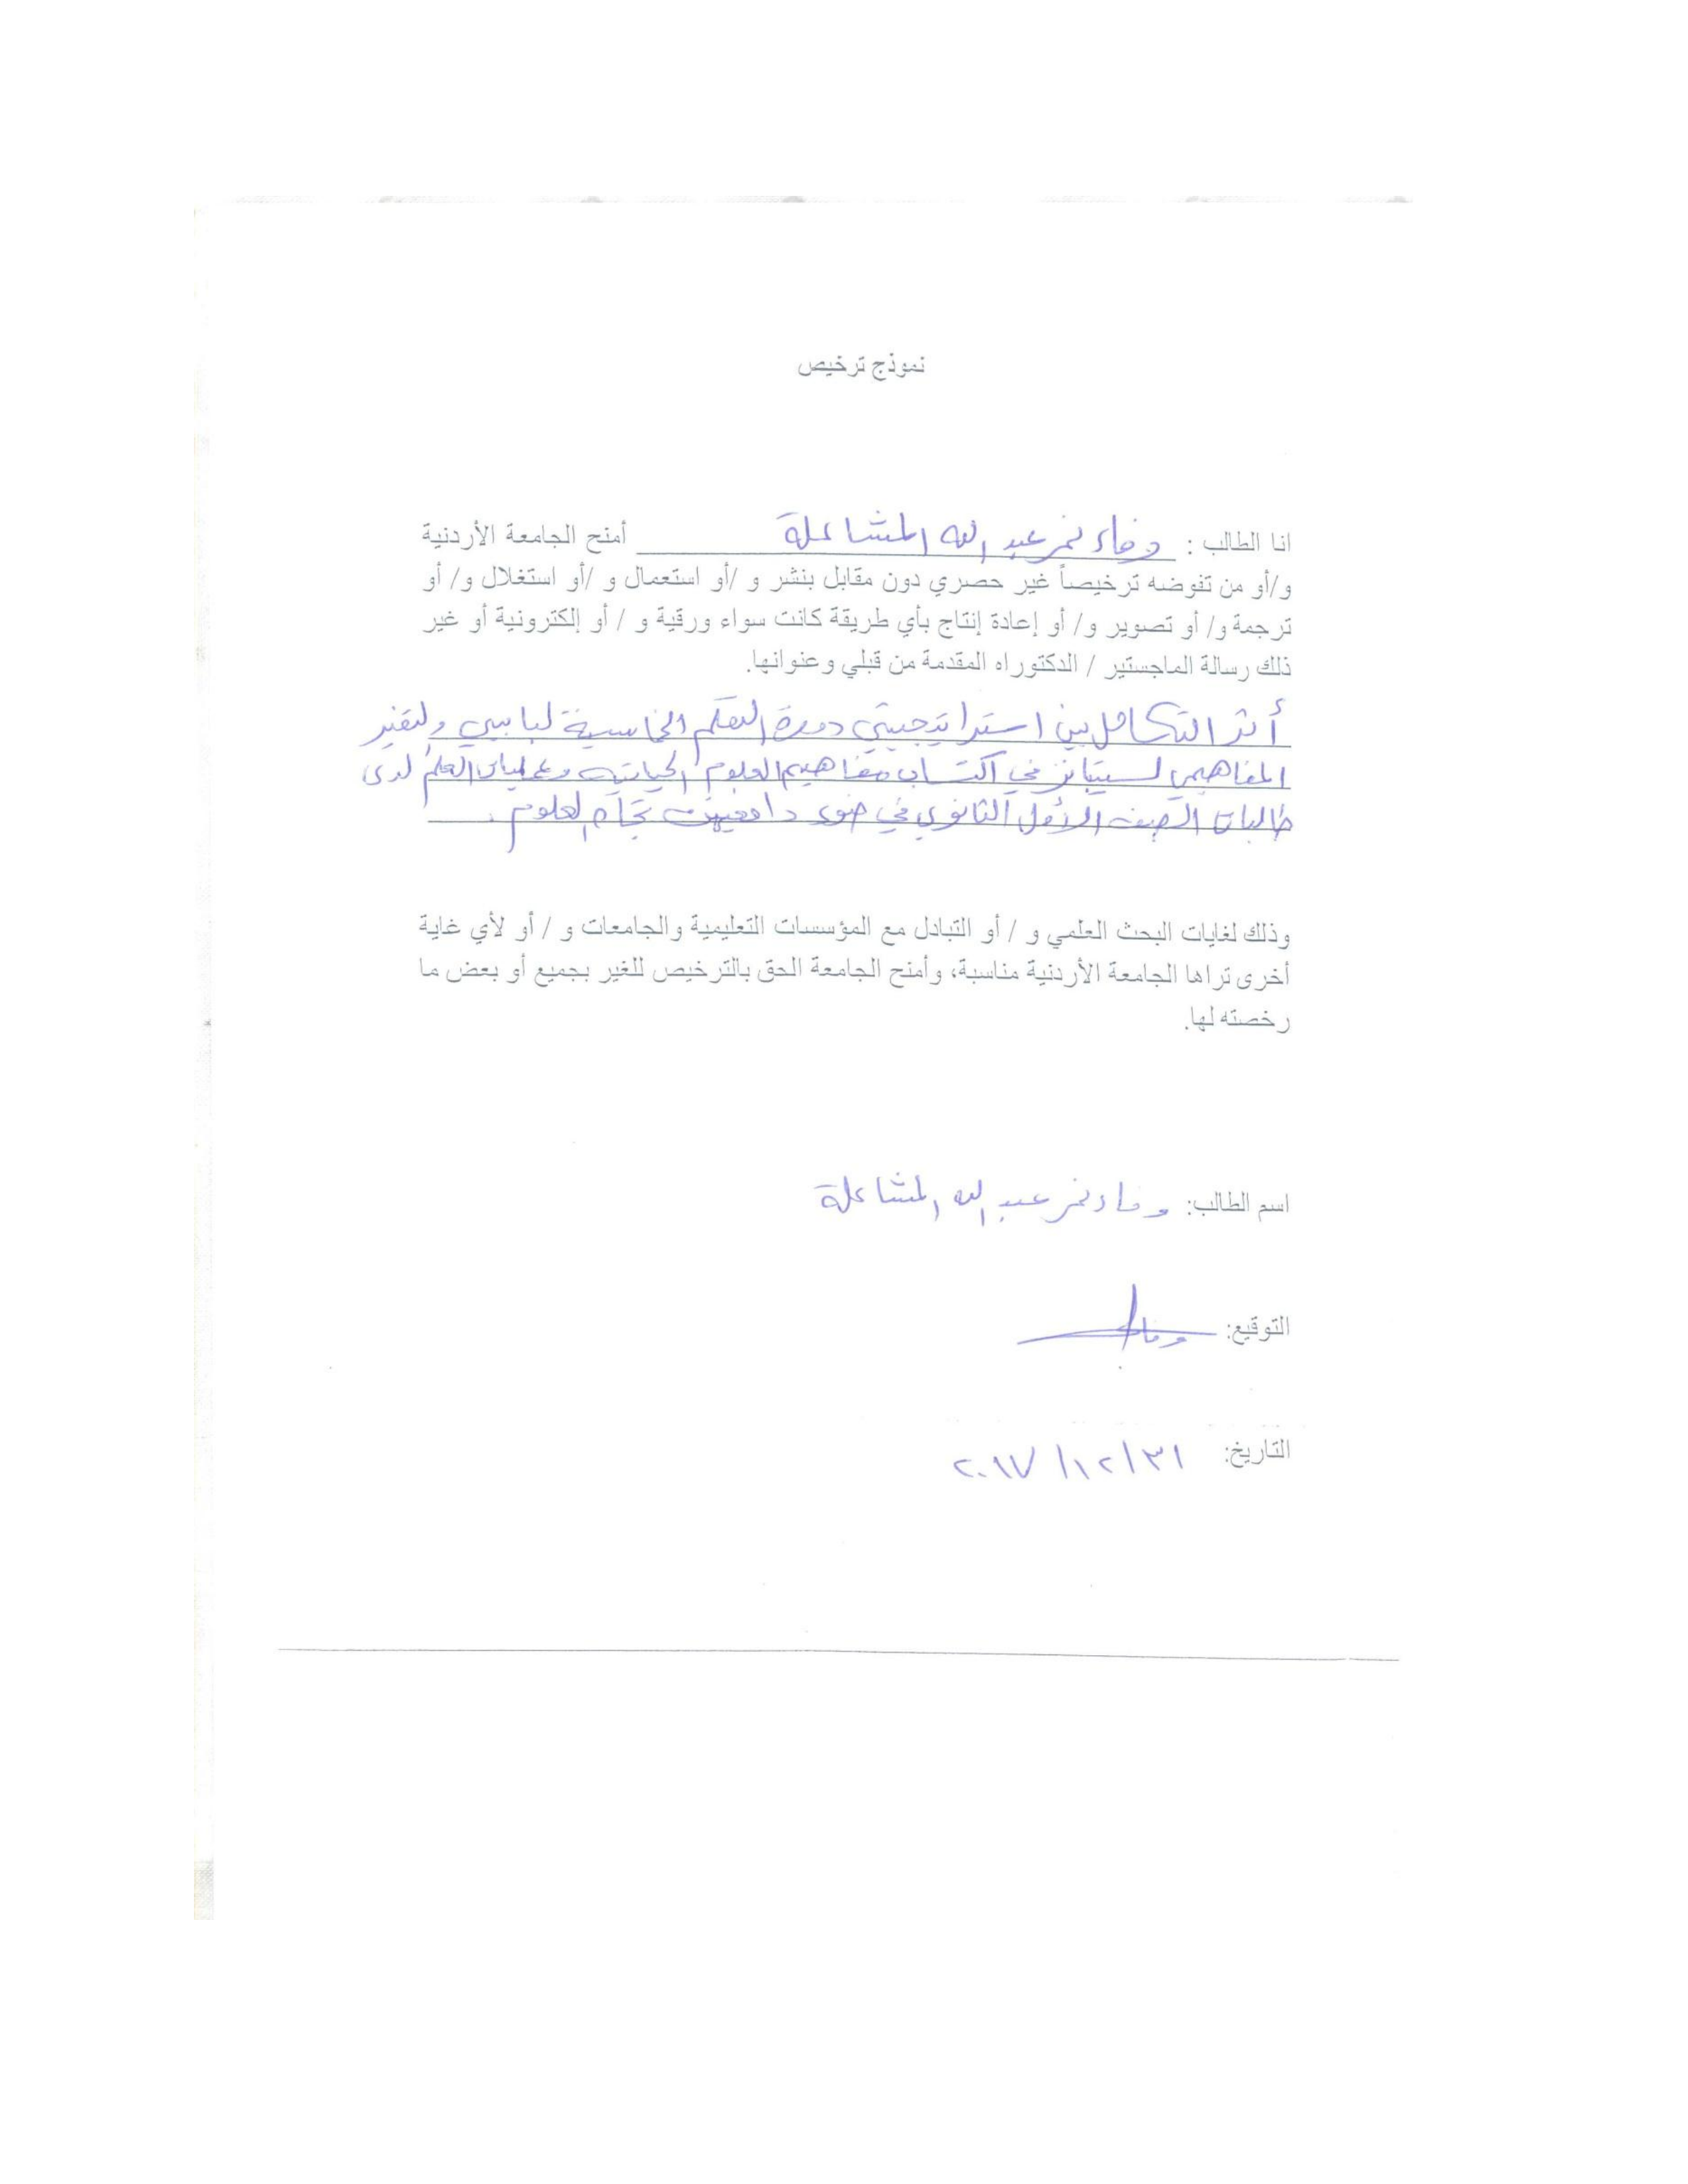 نموذج ترخيص
انا الطالب : وفاء نمر عبد الله المشاعلة أمنح الجامعة الأردنية
و/أو من تفوضه ترخيصاً غير حصري دون مقابل بنشر و /أو استعمال و /أو استغلال و/ أو
ترجمة و/ أو تصوير و/ أو إعادة إنتاج بأي طريقة كانت سواء ورقية و / أو إلكترونية أو غير
ذلك رسالة الماجستير / الدكتوراه المقدمة من قبلي وعنوانها.
أثر التكامل بين استراتيجيتي دورة التعلم الخماسية لبايبي والتغير
المفاهيمي لستيبانز في اكتساب مفاهيم العلوم الحياتية وعمليات العلم لدى
طالبات الصف الأول الثانوي في ضوء دافعيتهن تجاه العلوم.
وذلك لغايات البحث العلمي و / أو التبادل مع المؤسسات التعليمية والجامعات و / أو لأي غاية
أخرى تراها الجامعة الأردنية مناسبة، وأمنح الجامعة الحق بالترخيص للغير بجميع أو بعض ما
رخصته لها.
اسم الطالب: وفاء نمر عبد الله المشاعلة
التوقيع: وفاء
التاريخ: ٣١/١٢/ ٢٠١٧